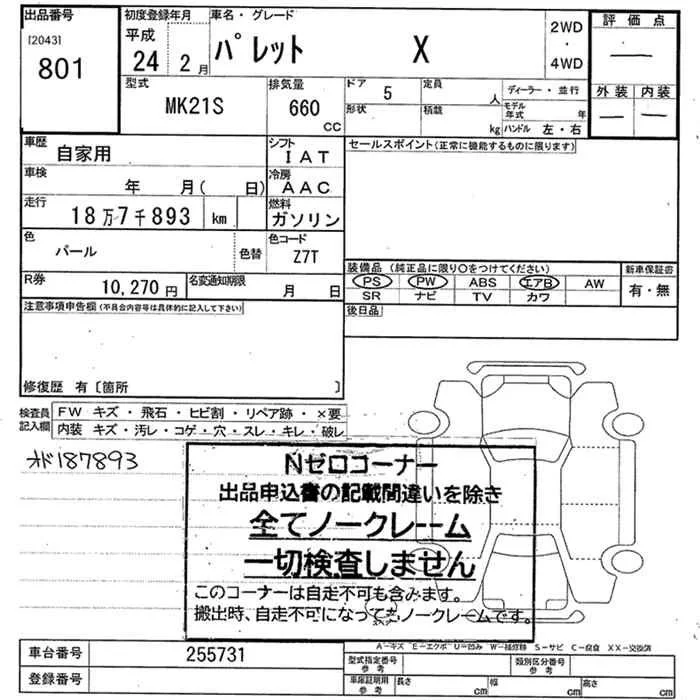 出品番号
[2043]
801
初度登録年月
平成
24 2月
車名・グレード
パレット X
2WD
・
4WD
評価点
—
外装 内装
— —
型式
MK21S
排気量
660
CC
ドア 5
形状
定員 人
積載 kg
ディーラー・並行
モデル年式 年
ハンドル 左・右
車歴
自家用
シフト
IAT
車検
年 月( 日)
冷房
AAC
走行
18万7千893 km
燃料
ガソリン
色
パール
色替
色コード
Z7T
R券
10,270円
名変通知期限
月 日
セールスポイント(正常に機能するものに限ります)
装備品 (純正品に限り○をつけてください)
PS PW ABS エアB AW
SR ナビ TV カワ
新車保証書
有・無
後日品
注意事項申告欄(不具合内容等は具体的に記入して下さい)
修復歴 有〔箇所 〕
検査員記入欄
FW キズ・飛石・ヒビ割・リペア跡・×要
内装 キズ・汚レ・コゲ・穴・スレ・キレ・破レ
オド187893
Nゼロコーナー
出品申込書の記載間違いを除き
全てノークレーム
一切検査しません
このコーナーは自走不可も含みます。
搬出時、自走不可になってもノークレームです。
A－キズ E－エクボ U－凹み W－補修跡 S－サビ C－腐食 XX－交換済
車台番号 255731
登録番号
型式指定番号
参考
類別区分番号
参考
車庫証明用
参考
長さ cm
幅 cm
高さ cm